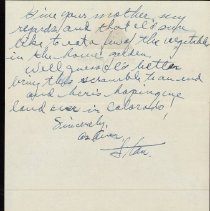 Give your mother my
regards and that I'd sure
like to eat a few of the vegetables
in the home garden.
Well guess I'd better
bring this scramble to an end
and here's hoping we
land in Colorado!
Sincerely,
Stan.